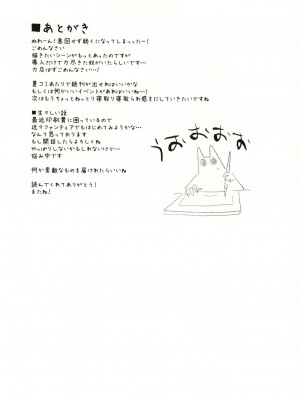 ■あとがき
ぬわーん!意図せず続くになってしまったー!
ごめんなさい
描きたいシーンがもっとあったのですが
導入だけで力尽きた奴がいたらしいです…
力及ばずごめんなさい…!
夏コミあたりで続刊が出せればいいかな
もしくは何かいいイベントがあればいいね…!
次はもうちょっとねっとり寝取り寝取られ感まだしていきたいですね
■生々しい話
最近印刷費に困っているので
近々ファンティアでもはじめてみようかな…
なんて思っております
もし開設したらよろしくね
やっぱりしないかもしれないけど…
悩み中です
何か素敵なものを届けれたらいいね
読んでくれてありがとう!
またね!
うおおおお